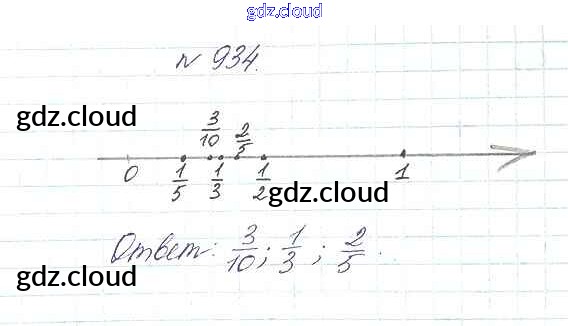 gdz.cloud
№ 934.
gdz.cloud
3/10 2/5
0 1/5 1/3 1/2 1
gdz.cloud
Ответ: 3/10; 1/3; 2/5.
gdz.cloud
gdz.cloud